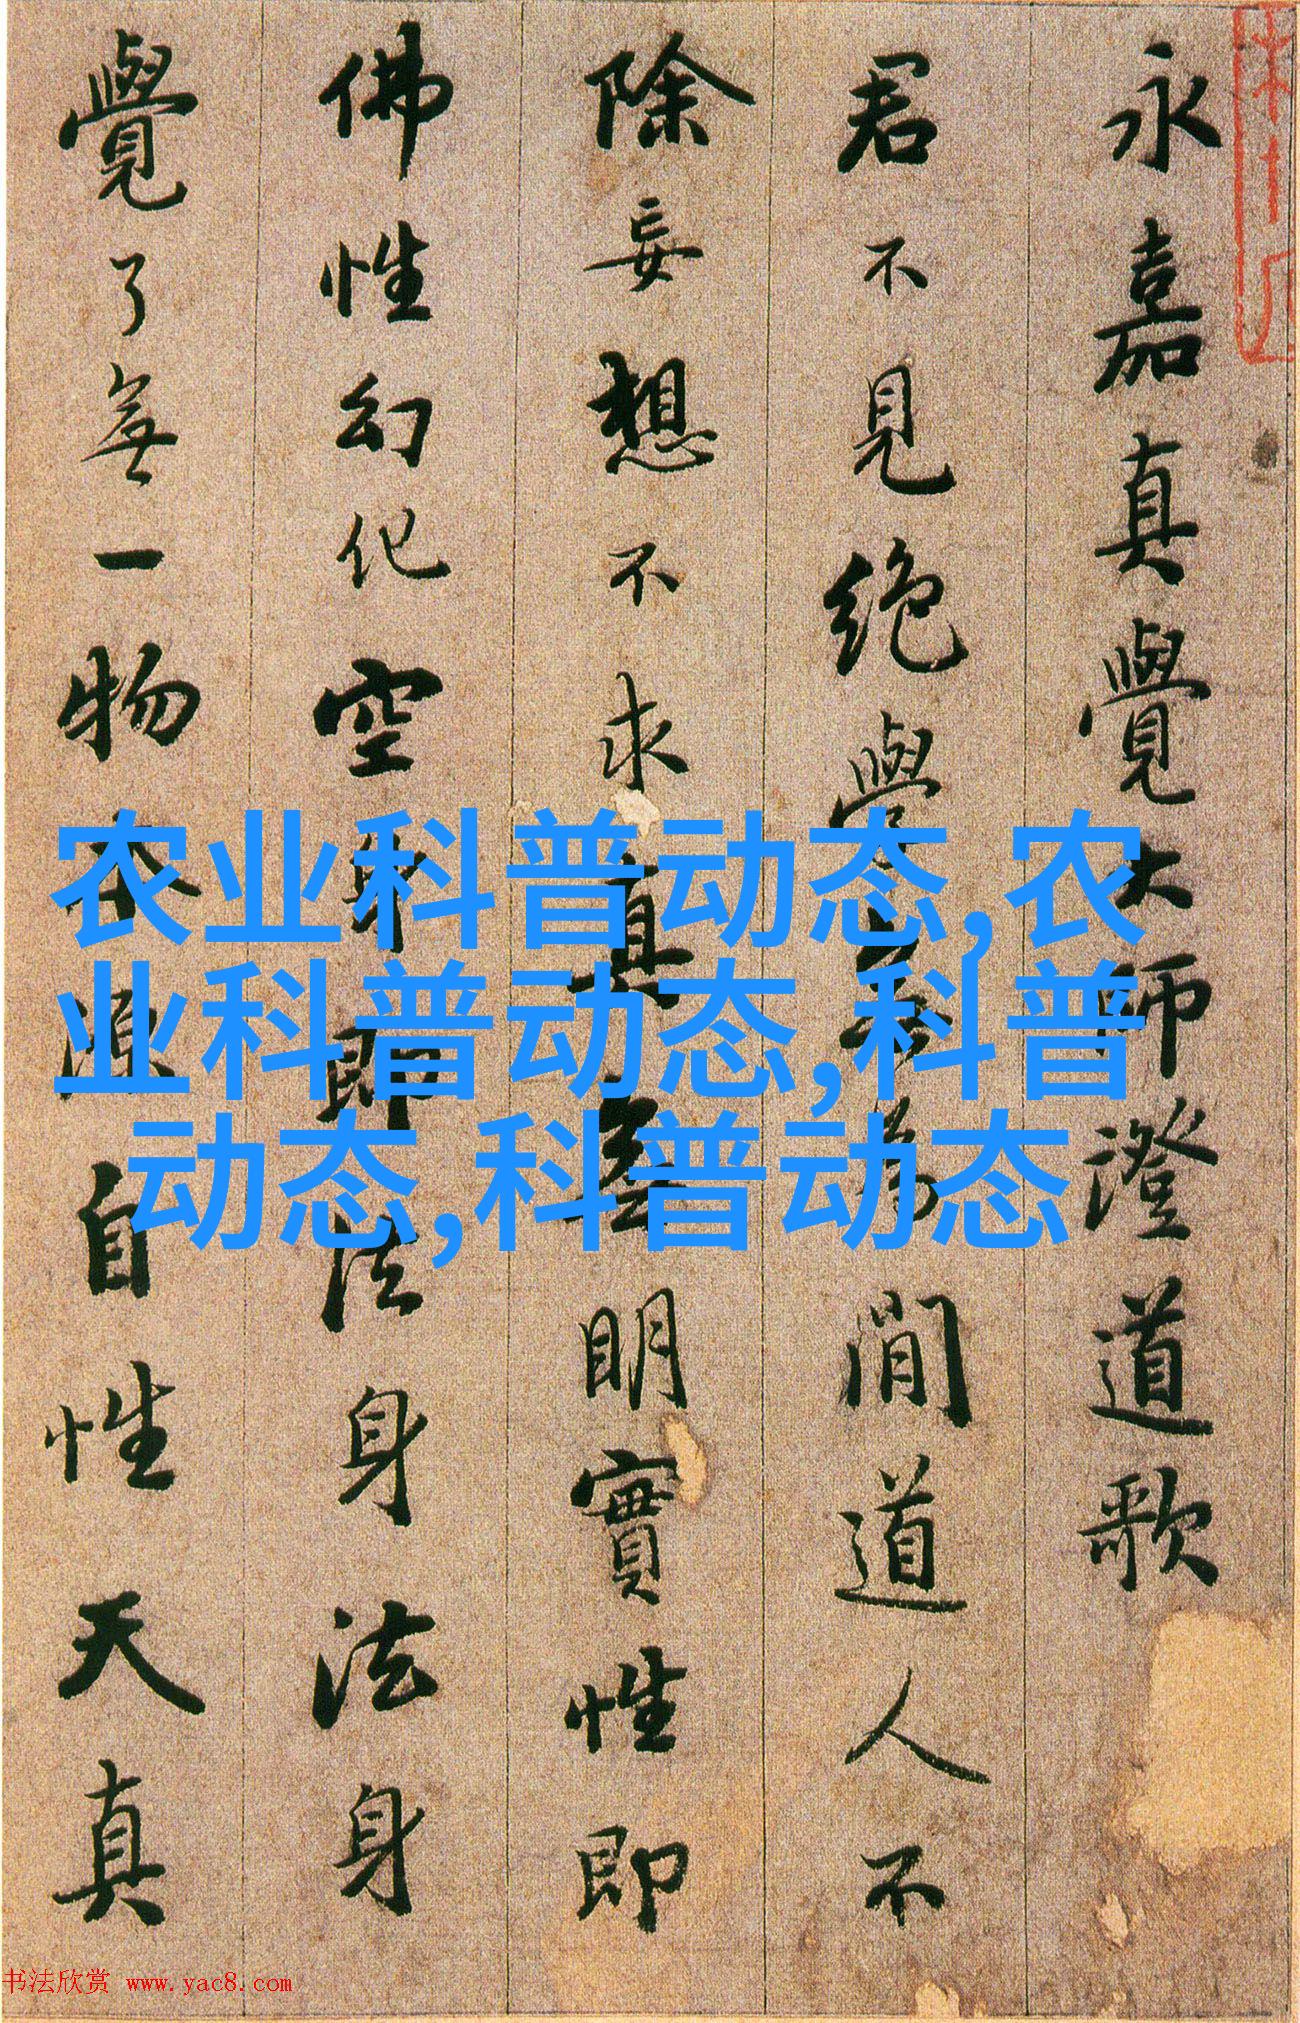 永嘉真覺大師澄道歌
君不見絕學無為閒道人不
除妄想不求真無明實性即
佛性幻化空身即法身法身
覺了無一物本源自性天真
农业科普动态,农
业科普动态,科普
动态,科普动态
书法欣赏 www.yac8.com